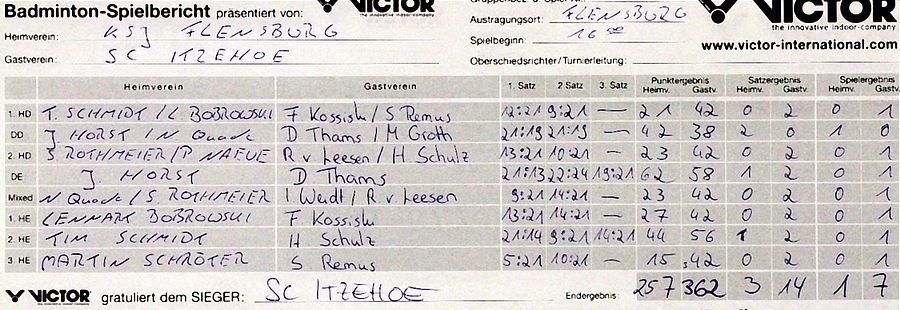 Badminton-Spielbericht präsentiert von: VICTOR the innovative indoor-company
Heimverein: KSJ FLENSBURG
Gastverein: SC ITZEHOE
Austragungsort: FLENSBURG
Spielbeginn: 16 00
Oberschiedsrichter/Turnierleitung:
VICTOR
the innovative indoor-company
www.victor-international.com
Heimverein Gastverein 1. Satz 2. Satz 3. Satz Punktergebnis Heimv. Gastv. Satzergebnis Heimv. Gastv. Spielergebnis Heimv. Gastv.
1. HD T. SCHMIDT/L BOBROWSKI F Kossiski/S Remus 12:21 9:21 — 21 42 0 2 0 1
DD J HORST / N Quade D Thams/M Groth 21:19 21:19 — 42 38 2 0 1 0
2. HD S ROTHMEIER/P NAEVE R v Leesen / H Schulz 13:21 10:21 — 23 42 0 2 0 1
DE J. HORST D Thams 21:13 22:24 19:21 62 58 1 2 0 1
Mixed N Quade/S. ROTHMEIER I Weidt/R v Leesen 9:21 14:21 — 23 42 0 2 0 1
1. HE LENNART BOBROWSKI F Kossiski 13:21 14:21 — 27 42 0 2 0 1
2. HE TIM SCHMIDT H Schulz 21:14 9:21 14:21 44 56 1 2 0 1
3. HE MARTIN SCHRÖTER S Remus 5:21 10:21 — 15 42 0 2 0 1
VICTOR gratuliert dem SIEGER: SC ITZEHOE Endergebnis: 257 362 3 14 1 7